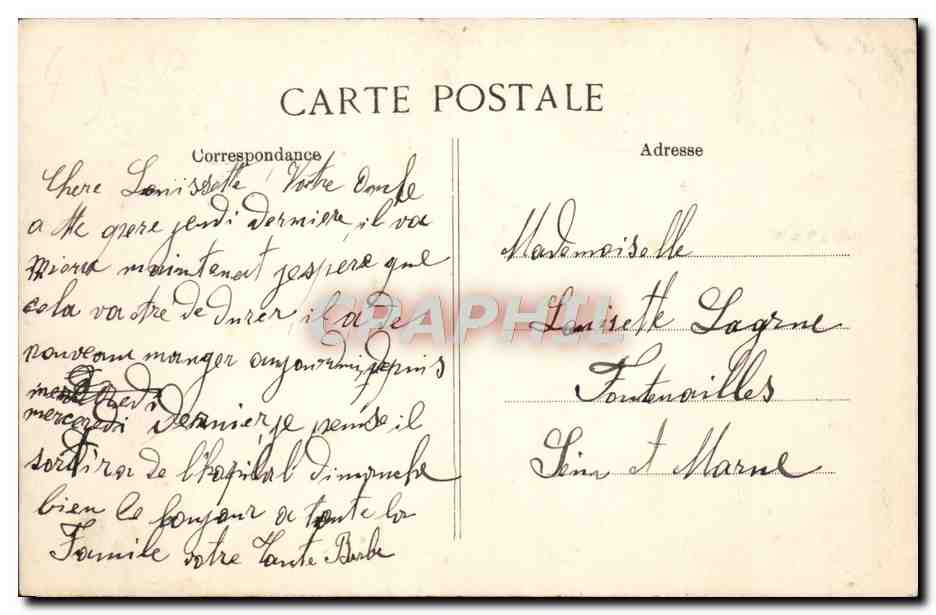 CARTE POSTALE
Correspondance
Adresse
Chere Louissette Votre Oncle
a ete opere jeudi derniere, il va
mieux maintenat j'espere que
cela va de durer, il a de
nouveau manger aujourdui depuis
mercredi
mercredi dernier je pense il
sortira de l'hopital Dimanche
bien le bonjour a toute la
Famile votre Tante Barbe
Mademoiselle
Louisette Lagrue
Fontenailles
Seine et Marne
CPAPHIL